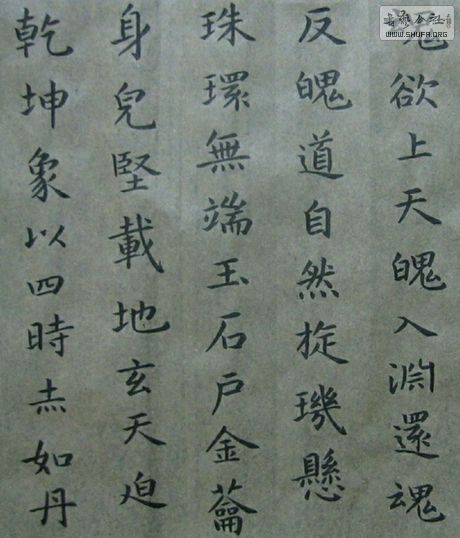 魂欲上天魄入淵還魂
反魄道自然旋璣懸
珠環無端玉石戶金蘥
身兒堅載地玄天迫
乾坤象以四時赤如丹
WWW.SHUFA.ORG